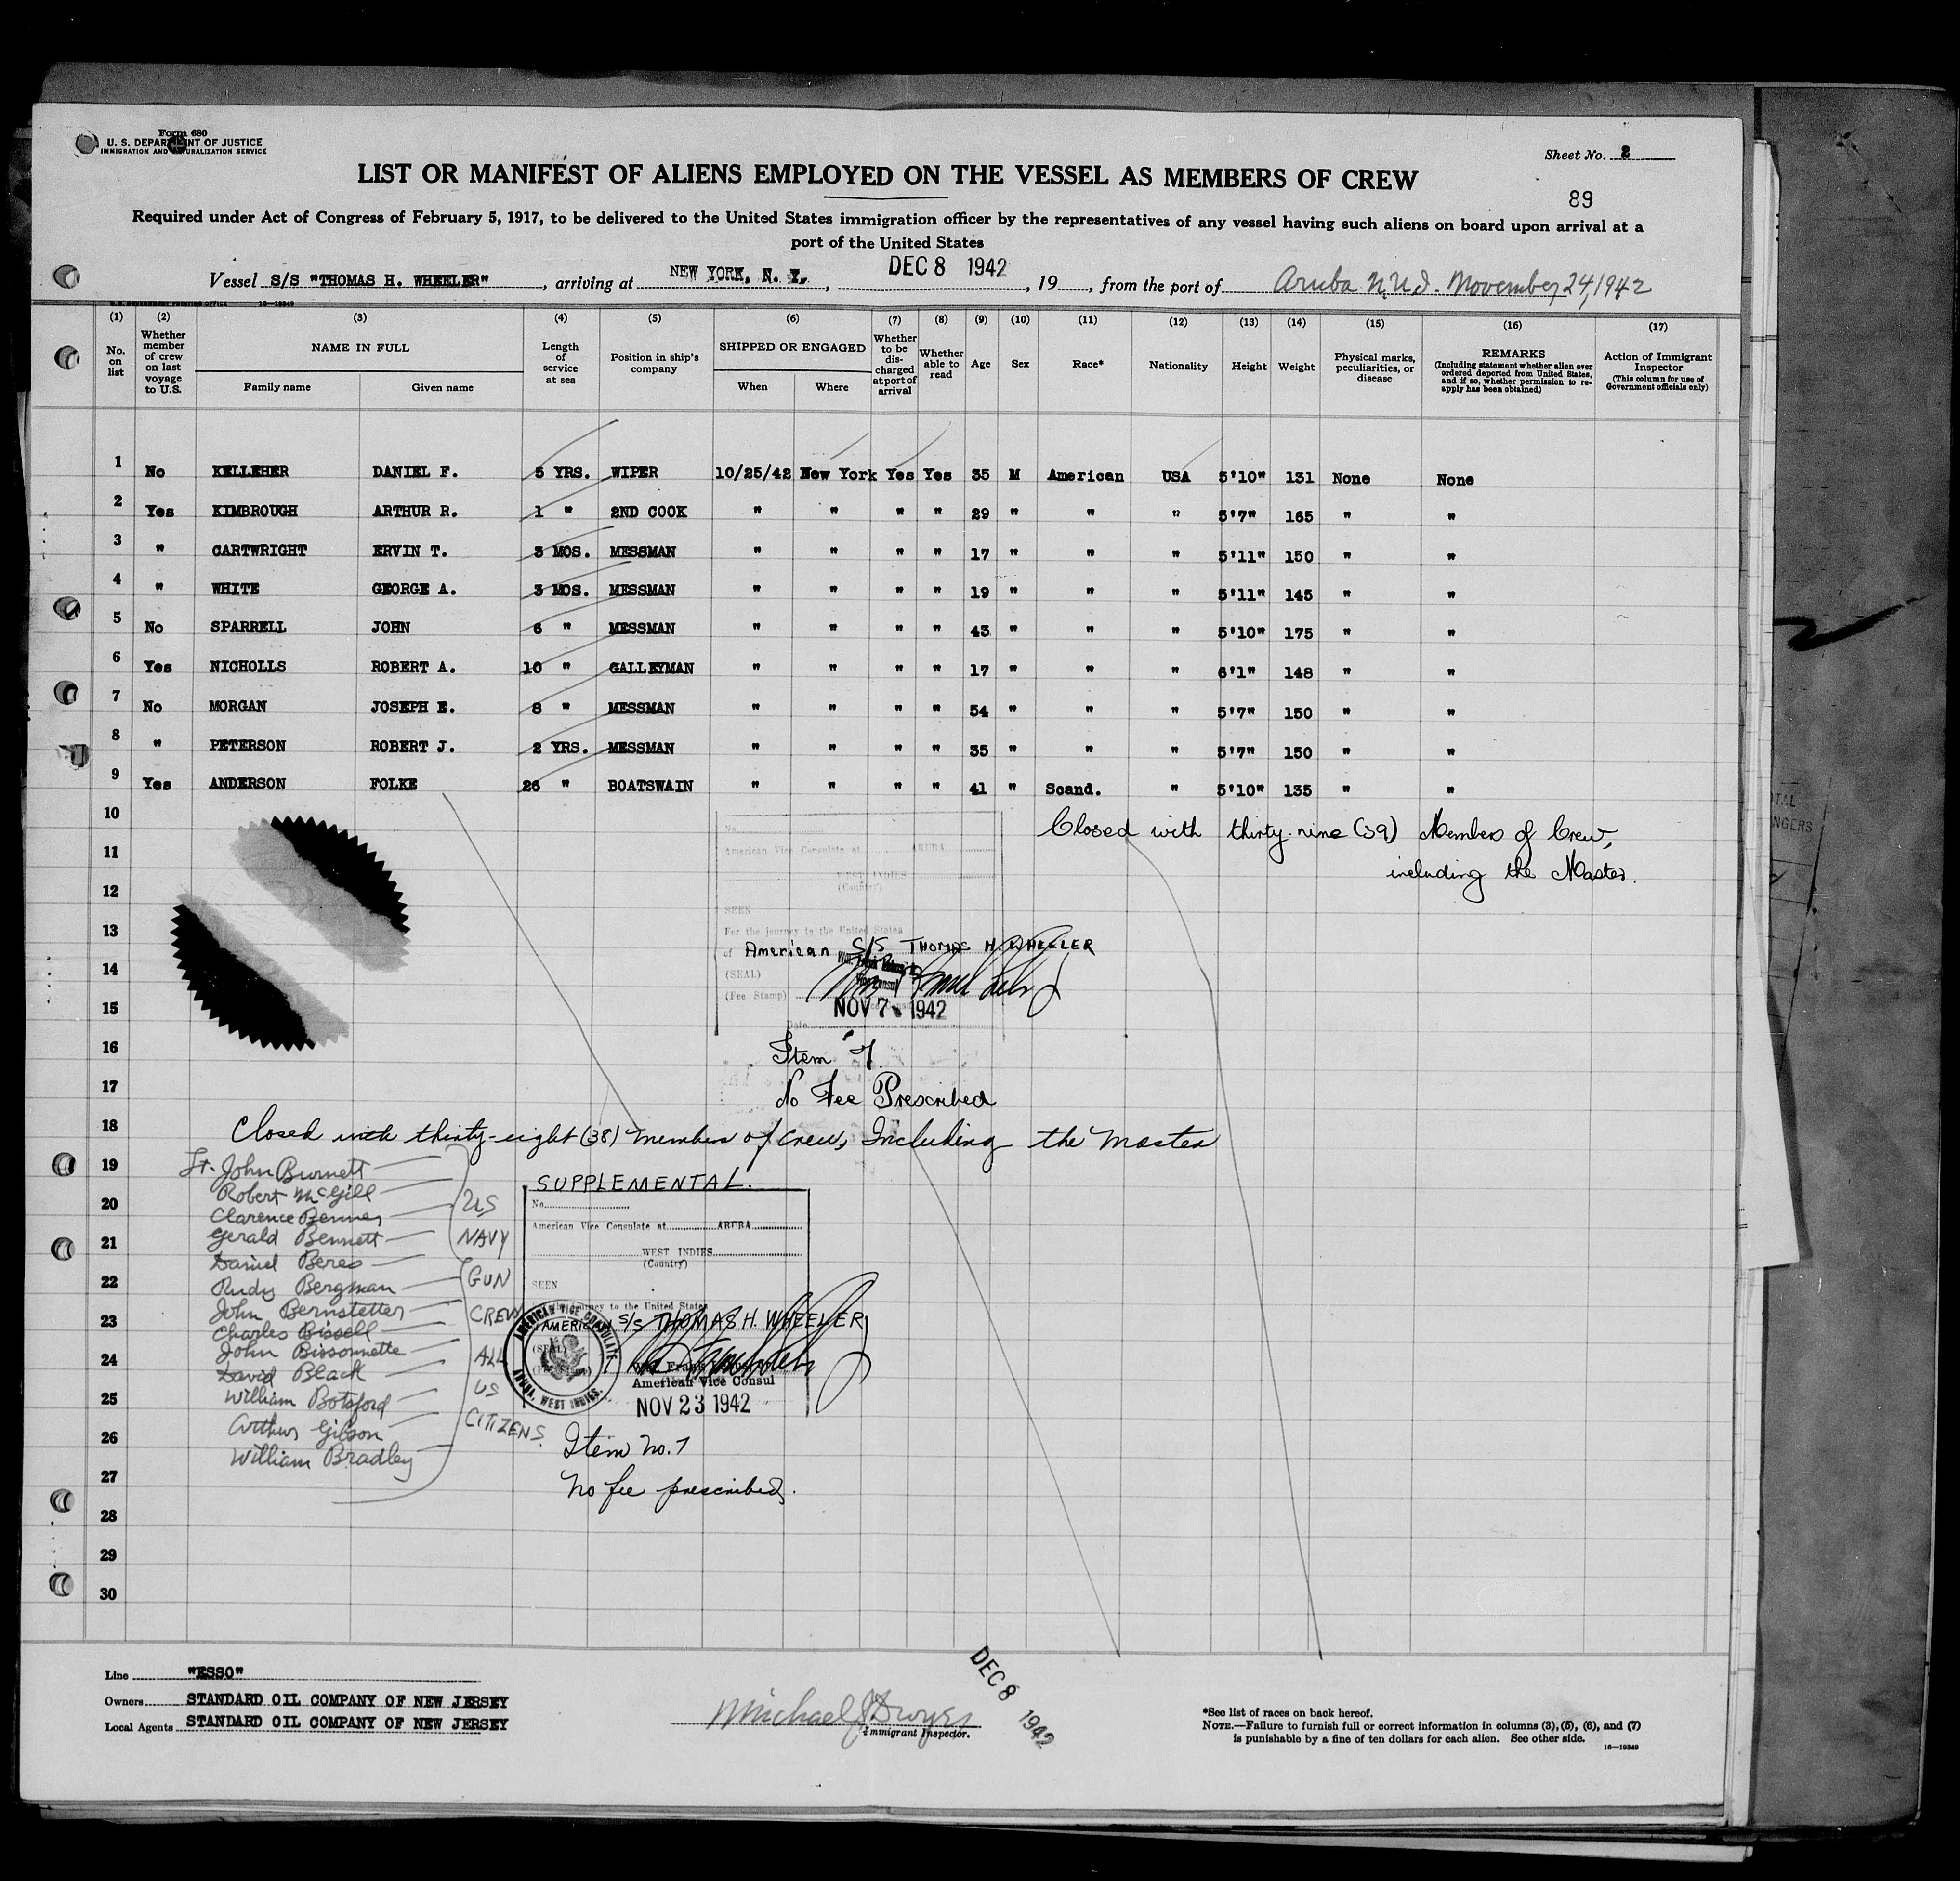 Form 680
U. S. DEPARTMENT OF JUSTICE
IMMIGRATION AND NATURALIZATION SERVICE
Sheet No. 2
LIST OR MANIFEST OF ALIENS EMPLOYED ON THE VESSEL AS MEMBERS OF CREW
89
Required under Act of Congress of February 5, 1917, to be delivered to the United States immigration officer by the representatives of any vessel having such aliens on board upon arrival at a
port of the United States
Vessel S/S "THOMAS H. WHEELER", arriving at NEW YORK, N. Y., DEC 8 1942, 19, from the port of Aruba N.W.I. November 24, 1942
U. S. GOVERNMENT PRINTING OFFICE 16—19349
(1) (2) (3) (4) (5) (6) (7) (8) (9) (10) (11) (12) (13) (14) (15) (16) (17)
No. on list
Whether member of crew on last voyage to U.S.
NAME IN FULL
Family name
Given name
Length of service at sea
Position in ship's company
SHIPPED OR ENGAGED
When
Where
Whether to be discharged at port of arrival
Whether able to read
Age
Sex
Race*
Nationality
Height
Weight
Physical marks, peculiarities, or disease
REMARKS
(Including statement whether alien ever ordered deported from United States, and if so, whether permission to reapply has been obtained)
Action of Immigrant Inspector
(This column for use of Government officials only)
1 No KELLEHER DANIEL F. 5 YRS. WIPER 10/25/42 New York Yes Yes 35 M American USA 5'10" 131 None None
2 Yes KIMBROUGH ARTHUR R. 1 " 2ND COOK " " " " 29 " " " 5'7" 165 " "
3 " CARTWRIGHT ERVIN T. 3 MOS. MESSMAN " " " " 17 " " " 5'11" 150 " "
4 " WHITE GEORGE A. 3 MOS. MESSMAN " " " " 19 " " " 5'11" 145 " "
5 No SPARRELL JOHN 6 " MESSMAN " " " " 43 " " " 5'10" 175 " "
6 Yes NICHOLLS ROBERT A. 10 " GALLEYMAN " " " " 17 " " " 6'1" 148 " "
7 No MORGAN JOSEPH E. 8 " MESSMAN " " " " 54 " " " 5'7" 150 " "
8 " PETERSON ROBERT J. 2 YRS. MESSMAN " " " " 35 " " " 5'7" 150 " "
9 Yes ANDERSON FOLKE 26 " BOATSWAIN " " " " 41 " Scand. " 5'10" 135 " "
10
Closed with thirty-nine (39) Members of Crew,
No.
American Vice Consulate at ARUBA
11
including the Master.
WEST INDIES
(Country)
12
SEEN
13
For the journey to the United States
of American S/S THOMAS H. WHEELER
14
(SEAL)
(Fee Stamp)
15
NOV 7 1942
Date
16
Item 7
17
No Fee Prescribed
18
Closed with thirty-eight (38) members of crew, Including the Master
19
Lt. John Burnett
SUPPLEMENTAL.
Robert McGill
20
US
No.
Clarence Benner
American Vice Consulate at ARUBA
21
Gerald Bennett
NAVY
WEST INDIES
(Country)
Daniel Beres
22
GUN
SEEN
Rudy Bergman
John Bernstetter
CREW
For the journey to the United States
23
AMERICAN S/S THOMAS H. WHEELER
Charles Bissell
John Bissonnette
24
ALL
(SEAL)
AMERICAN VICE CONSULATE
ARUBA, WEST INDIES.
David Black
US
American Vice Consul
25
William Botsford
NOV 23 1942
CITIZENS.
Arthur Gibson
26
Item No. 7
William Bradley
27
No fee prescribed.
28
29
30
Line "ESSO"
Owners STANDARD OIL COMPANY OF NEW JERSEY
Local Agents STANDARD OIL COMPANY OF NEW JERSEY
Michael J Dwyer
Immigrant Inspector.
DEC 8 1942
*See list of races on back hereof.
NOTE.—Failure to furnish full or correct information in columns (3), (5), (6), and (7)
is punishable by a fine of ten dollars for each alien. See other side.
16—19349